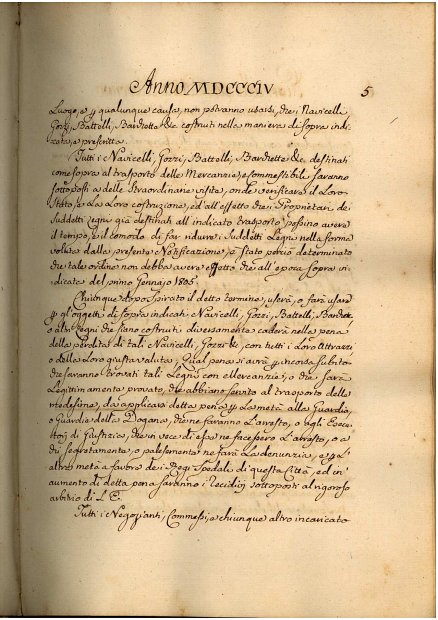 Anno MDCCCIV 5
Luogo, e p qualunque causa, non potranno usarsi, che i Navicelli
Gozzi, Battelli, Barchette &c costruti nella maniera di sopra indi,
cata, e prescritta
Tutti i Navicelli, Gozzi, Battelli, Barchette &c. destinati
come sopra al trasporto delle Mercanzie, e Commestibili saranno
sottoposti a delle straordinarie visite, onde verificare il Loro
stato, e La Loro costruzione; ed all'effetto che i Proprietari dei
suddetti Legni già destinati all'indicato trasporto possino avere
il tempo, e il comodo di far ridurre i suddetti Legni nella forma
voluta dalla presente Notificazione, è stato perciò determinato
che tale ordine non debba avere effetto che all'epoca sopra in,
dicata del primo Gennajo 1805.
Chiunque dopo spirato il detto termine, userà, o farà usare
p gl'oggetti di sopra indicati Navicelli, Gozzi, Battelli, Barchette
o altri Legni che siano costruti diversamente caderà nella pena
della perdita di tali Navicelli, Gozzi &c, con tutti i Loro Attrazzi
o della Loro giusta valuta; Qual pena si avrà p incorsa subito
che saranno trovati tali Legni con Mercanzie, o che sarà
Legittimamente provato, che abbiano servito al trasporto delle
medesime, da applicarsi detta pena p La metà alla Guardia,
o Guardie della Dogana, che ne faranno L'arresto, o agli Esecu,
tori di Giustizia, che in vece di esse ne facessero L'arresto, o a
chi segretamente, o palesemente ne farà La denunzia, e p L'
altra metà a favore dei Regi Spedali di questa Città, ed in
aumento di detta pena saranno i Recidivi sottoposti al rigoroso
arbitrio di L. E.
Tutti i Negozianti, Commessi, e chiunque altro incaricato